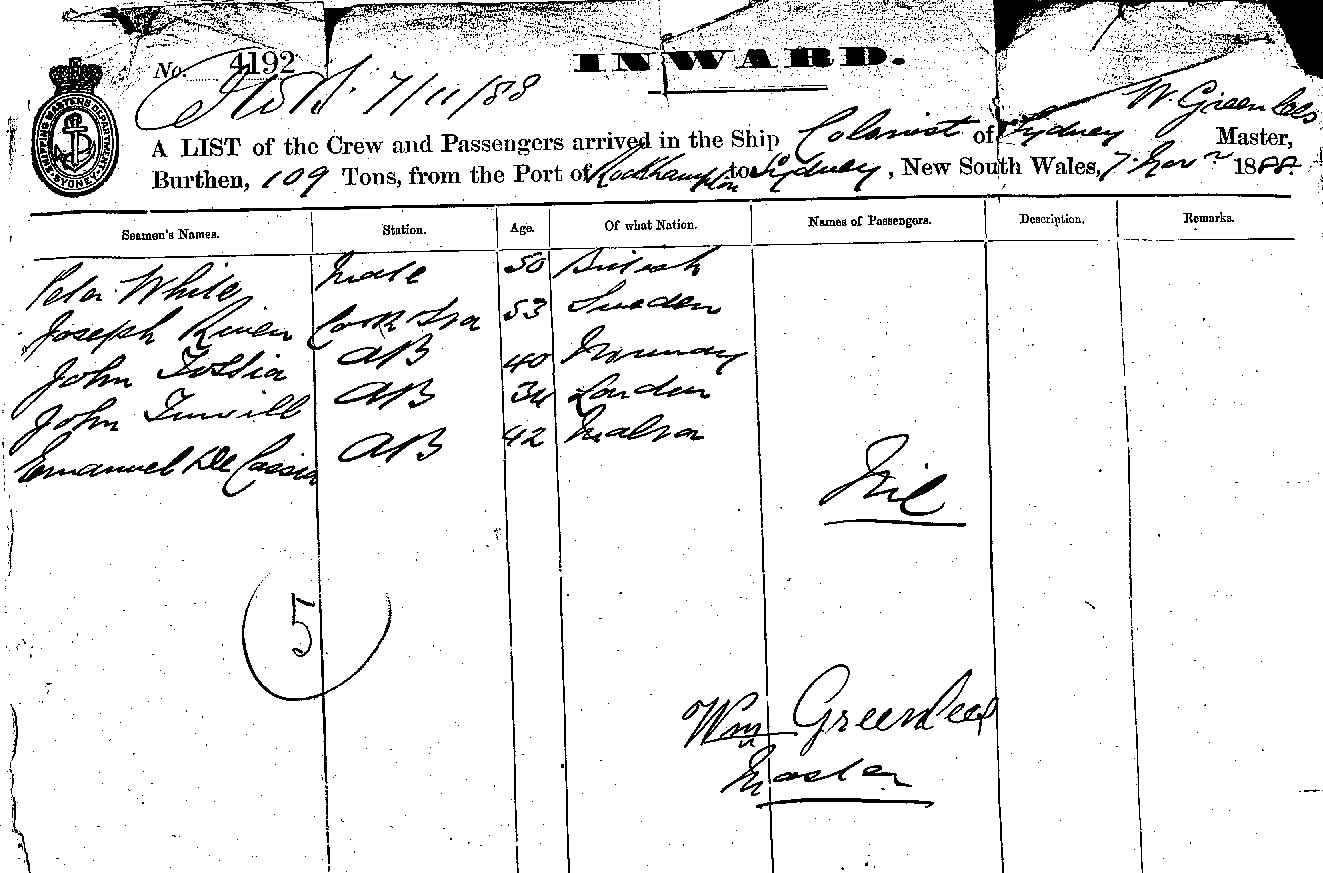 INWARD.
No. 4192
7/11/88
W. Greenlees
A LIST of the Crew and Passengers arrived in the Ship Colonist of Sydney Master,
Burthen, 109 Tons, from the Port of Rockhampton to Sydney, New South Wales, 7 Novr 1888.
SHIPPING MASTERS DEPARTMENT SYDNEY
Seamen's Names. Station. Age. Of what Nation. Names of Passengers. Description. Remarks.
Peter White Mate 50 British
Joseph Cook 53 Sweden
John AB 40 Norway
John AB 34 London
Emanuel De Cassia AB 42 Malta
Nil
5
Wm Greenlees
Master